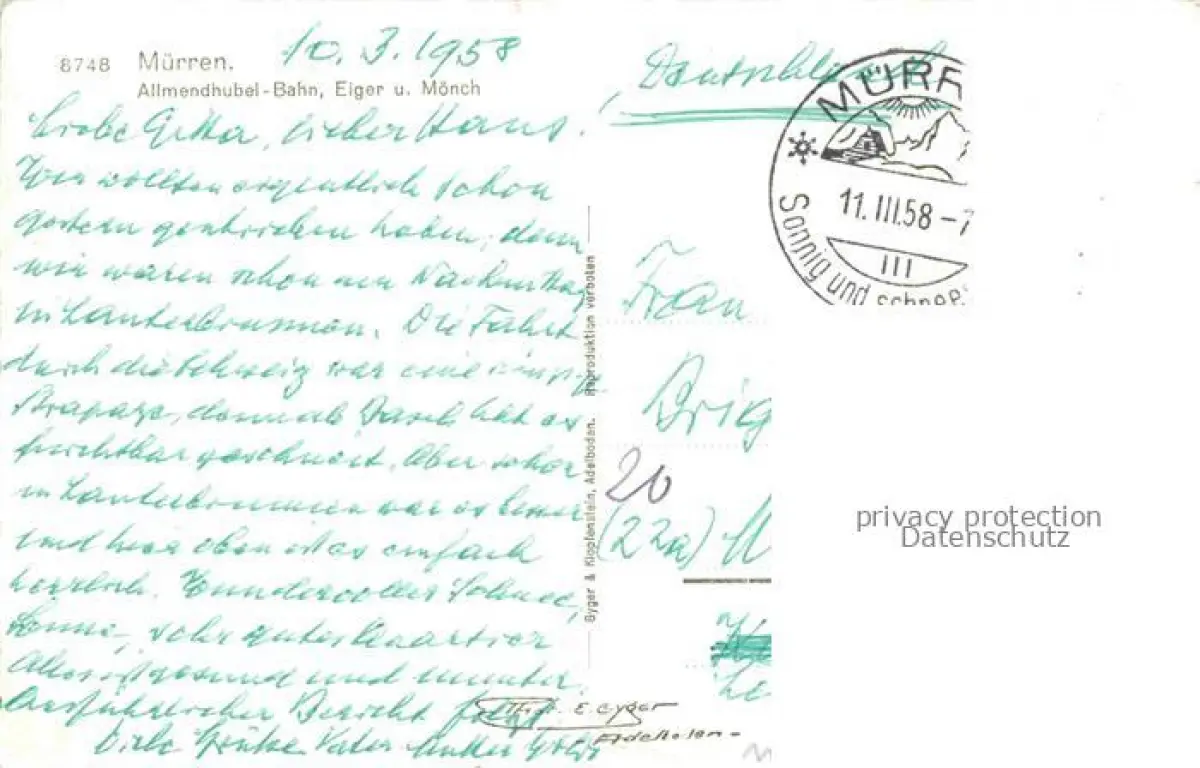 8748 Mürren.
Allmendhubel-Bahn, Eiger u. Mönch
10. 3. 1958
Deutschland
lieber Hans.
Wir wollten eigentlich schon
gestern geschrieben haben, denn
wir waren schon am
in Lauterbrunnen. Die Fahrt
durch die Schweiz war eine
Strapaze, denn ab Basel hat es
furchtbar geschneit. Aber schon
in Lauterbrunnen war es besser
und hier oben ist es einfach
herrlich. Wundervoller Schnee,
Sonne, sehr gutes Quartier
gesund und munter.
Ausführlicher Bericht folgt
Viele Grüße Vater Mutter
Gyger & Klopfenstein, Adelboden. Reproduktion verboten
MÜRR
11. III.58 -7
III
Sonnig und schnees
Frau
Brig
20
(22a) M
Phot. E. Gyger
Adelboden-
privacy protection
Datenschutz